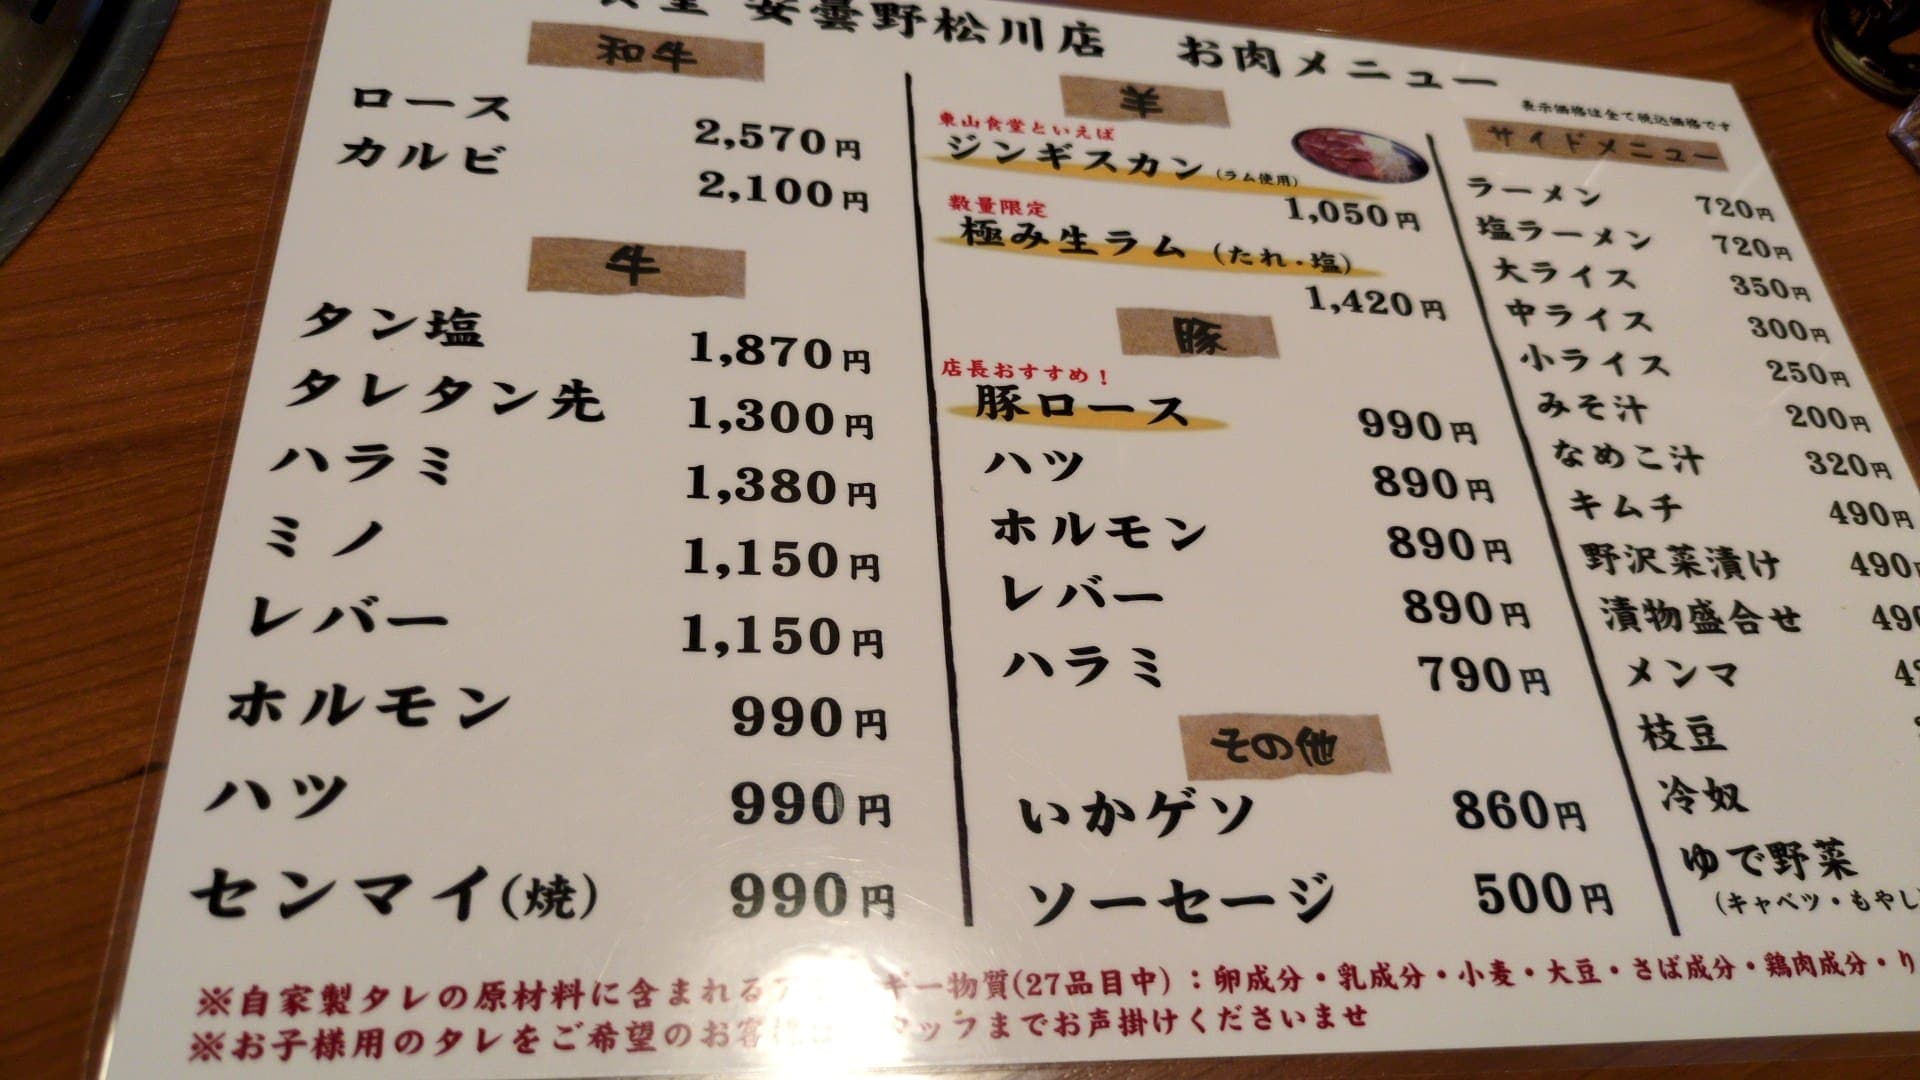 食堂 安曇野松川店 お肉メニュー
表示価格は全て税込価格です
和牛
ロース 2,570円
カルビ 2,100円
牛
タン塩 1,870円
タレタン先 1,300円
ハラミ 1,380円
ミノ 1,150円
レバー 1,150円
ホルモン 990円
ハツ 990円
センマイ(焼) 990円
羊
東山食堂といえば
ジンギスカン (ラム使用)
1,050円
数量限定
極み生ラム (たれ・塩)
1,420円
豚
店長おすすめ!
豚ロース 990円
ハツ 890円
ホルモン 890円
レバー 890円
ハラミ 790円
その他
いかゲソ 860円
ソーセージ 500円
サイドメニュー
ラーメン 720円
塩ラーメン 720円
大ライス 350円
中ライス 300円
小ライス 250円
みそ汁 200円
なめこ汁 320円
キムチ 490円
野沢菜漬け 490円
漬物盛合せ 490
メンマ
枝豆
冷奴
ゆで野菜
(キャベツ・もやし)
※自家製タレの原材料に含まれる ギー物質(27品目中):卵成分・乳成分・小麦・大豆・さば成分・鶏肉成分・り
※お子様用のタレをご希望のお客様は タッフまでお声掛けくださいませ